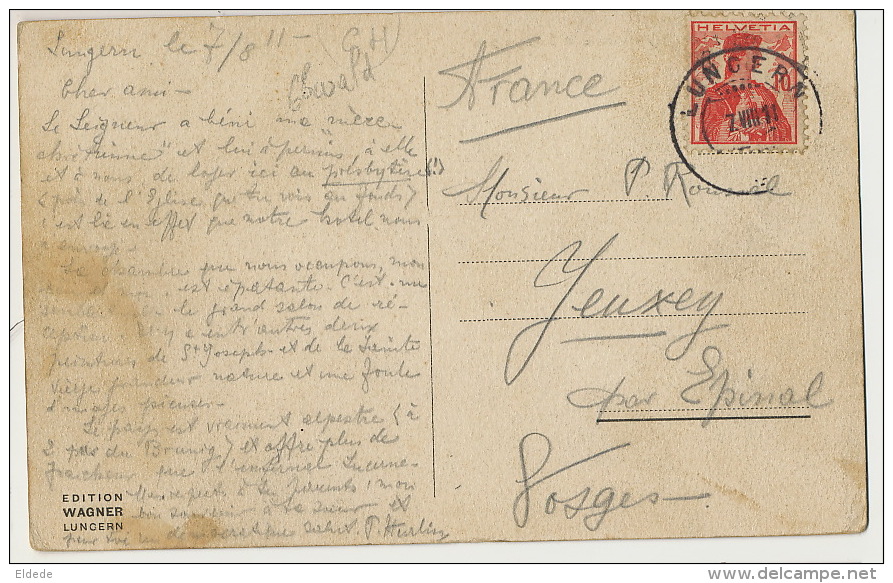 Lungern le 7/8 11 –
Obwald
Cher ami –
Le Seigneur a béni ma mère
chrétienne" et lui a permis à elle
et à nous de loger ici au presbytère (!)
de l'Eglise que tu vois au fond
c'est là en effet que notre hotel nous
a envoyé –
La chambre que nous occupons, mon
est épatante. C'est
le grand salon de ré-
ception. Il y a entr'autres deux
peintures de St Joseph et de la Sainte
Vierge grandeur nature et une foule
d'images pieuses –
Le pays est vraiment alpestre (à
2 pas du Brunig) et offre plus de
fraicheur que l'infernal Lucerne –
Mes respects à tes parents, mon
bon souvenir à ta sœur et
pour toi un démocratique salut. P. Hurlin
EDITION
WAGNER
LUNGERN
France
HELVETIA
10
LUNGERN
7.VIII.11
Monsieur P Roussel
Yeuxey
par Epinal
Vosges –
Eldede
delcampe.net